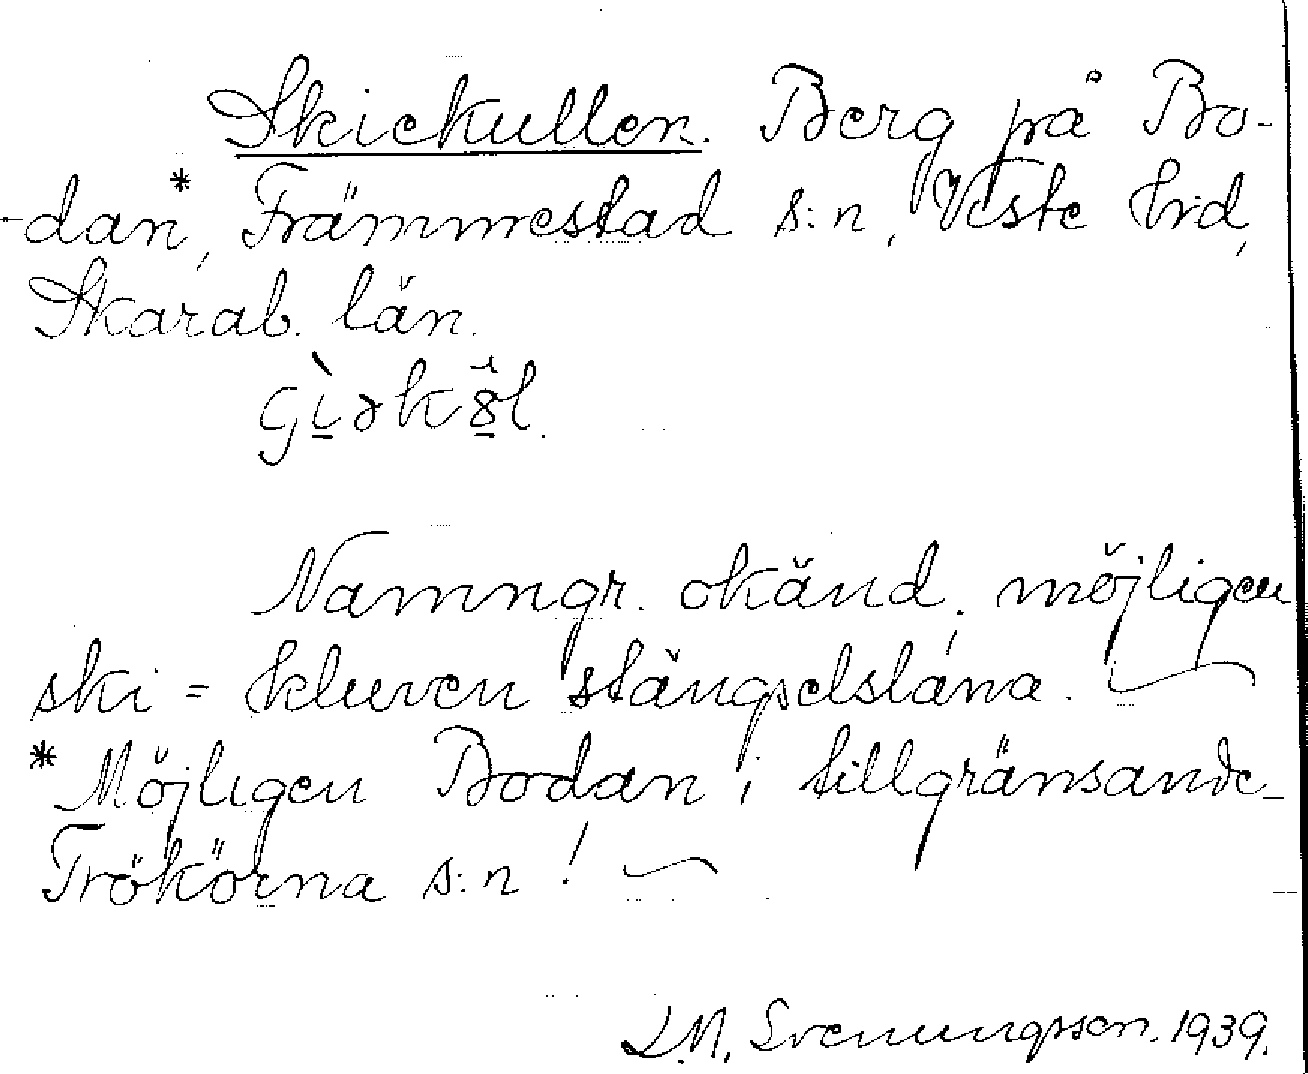 Skiekullen. Berg på Bo-
-dan*, Främmestad s:n, Viste hrd,
Skarab. län.
Namngr. okänd, möjligen
ski = kluven stängselslana.
* Möjligen Bodan i tillgränsande
Trökörna s:n!
L.M. Svenungsson. 1939.